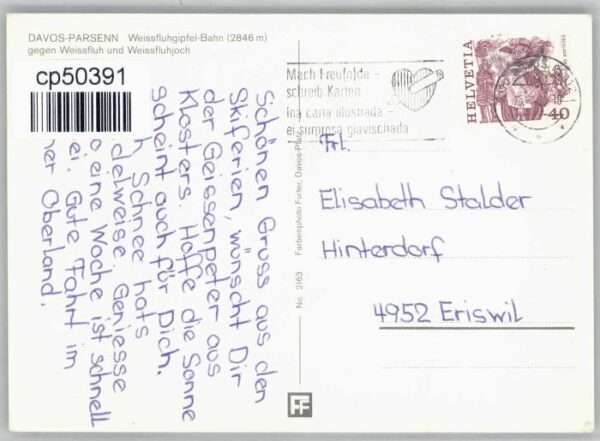 DAVOS-PARSENN Weissfluhgipfel-Bahn (2846 m)
gegen Weissfluh und Weissfluhjoch
cp50391
Schönen Gruss aus den
Skiferien, wünscht Dir
der Geissenpeter aus
Klosters. Hoffe die Sonne
scheint auch für Dich.
Schnee hats
delweise. Geniesse
o eine Woche ist schnell
ei. Gute Fahrt im
ner Oberland.
No. 2163 Farbenphoto Furter, Davos-Platz
Mach Freu(n)de -
schreib Karten
ina carta illustrada -
ei surpraisa giavischada
HELVETIA
40
Frl.
Elisabeth Stalder
Hinterdorf
4952 Eriswil
FF